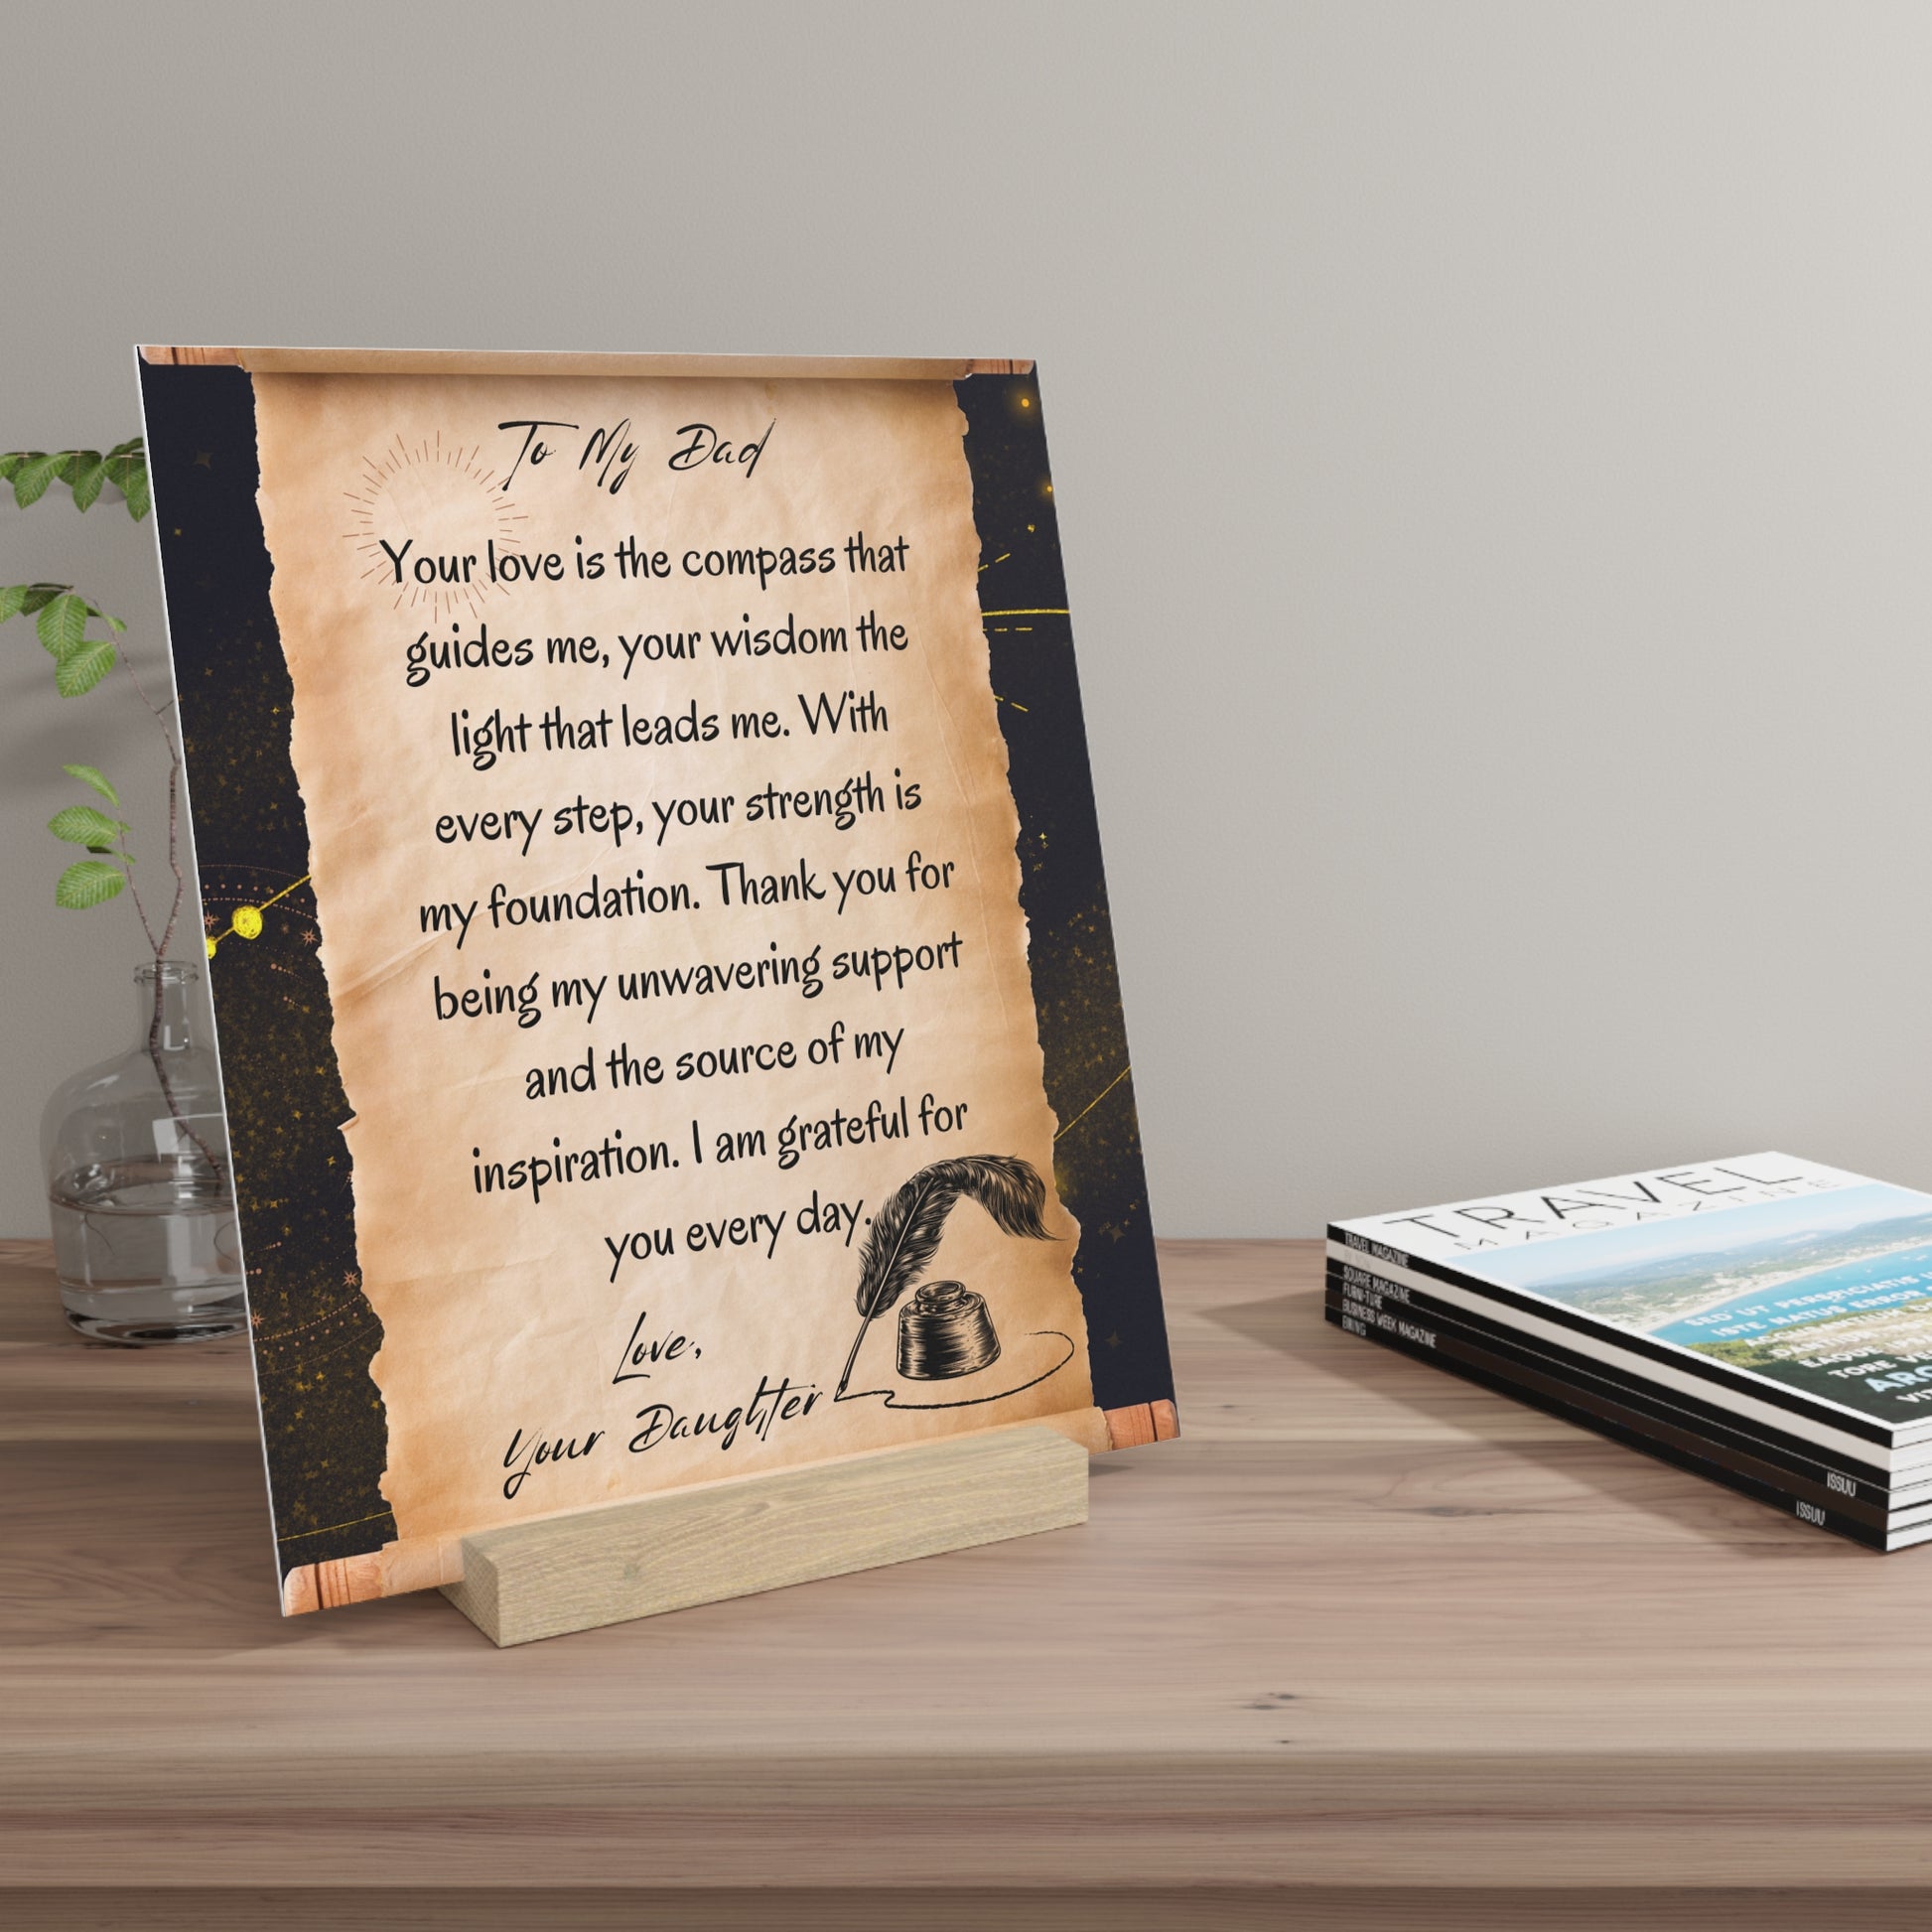 To My Dad
Your love is the compass that
guides me, your wisdom the
light that leads me. With
every step, your strength is
my foundation. Thank you for
being my unwavering support
and the source of my
inspiration. I am grateful for
you every day.
Love,
Your Daughter
TRAVEL
MAGAZINE
SED UT PERSPICIATIS
ISTE NATUS ERROR
TRAVEL MAGAZINE
SQUARE MAGAZINE
FURNITURE
BUSINESS WEEK MAGAZINE
ISSUU
ISSUU